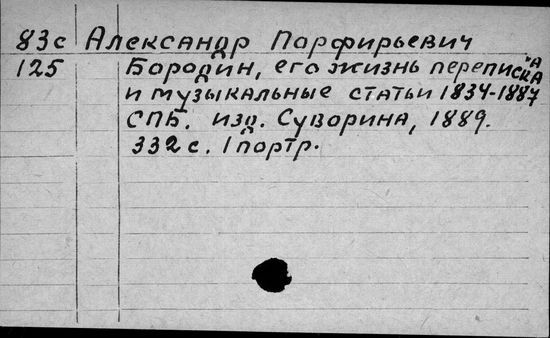 83с Александр Порфирьевич
125 Бородин, его жизнь переписка
и музыкальные статьи 1834-1887
СПБ. изд. Суворина, 1889.
332 с. 1 портр.